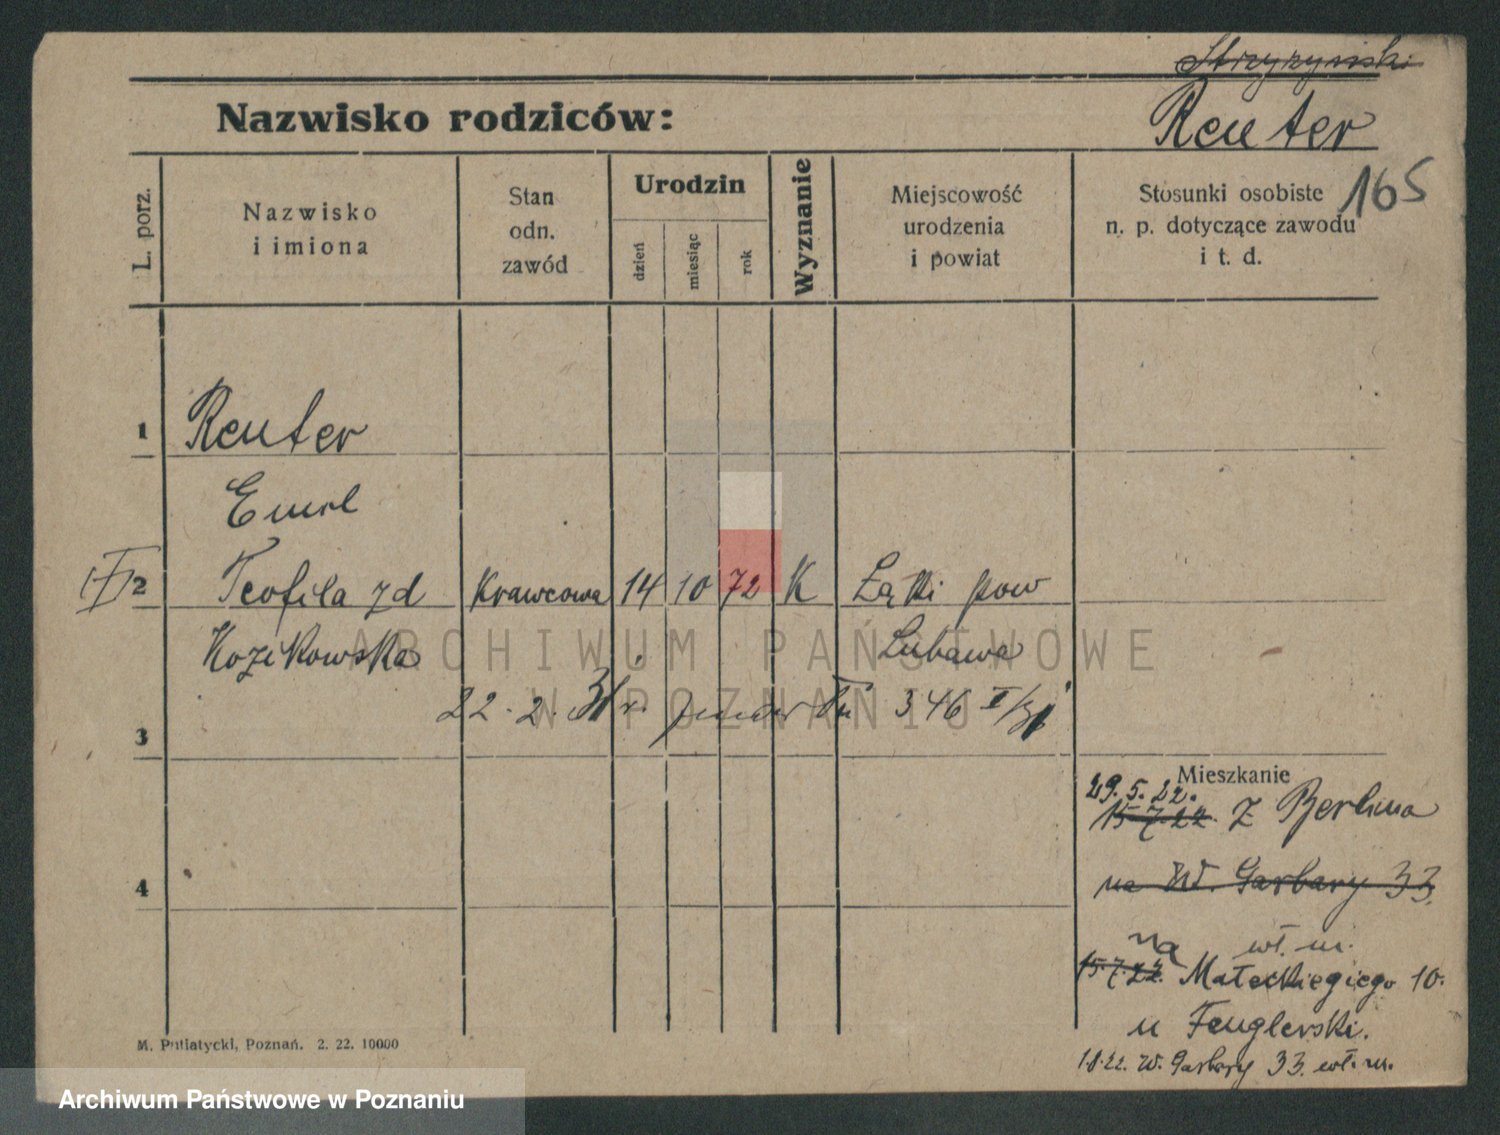 Strzyzynski
Nazwisko rodziców:
Reuter
165
L. porz.
Nazwisko
i imiona
Stan
odn.
zawód
Urodzin
dzień
miesiąc
rok
Wyznanie
Miejscowość
urodzenia
i powiat
Stosunki osobiste
n. p. dotyczące zawodu
i t. d.
1
Reuter
Emil
2 Teofila zd Krawcowa 14 10 72 K Łątki pow
Kozikowska Lubawa
22. 2. 31 r. 346 II/31
3
Mieszkanie
29. 5. 22.
15 7. 22. Z Berlina
4
na W. Garbary 33.
na wł. m.
15. 7. 22. Małeckiegiego 10.
u Fenglerski.
1.8.22. W. Garbary 33. wł. m.
M. Putiatycki, Poznań. 2. 22. 10000
ARCHIWUM PAŃSTWOWE
W POZNANIU
Archiwum Państwowe w Poznaniu